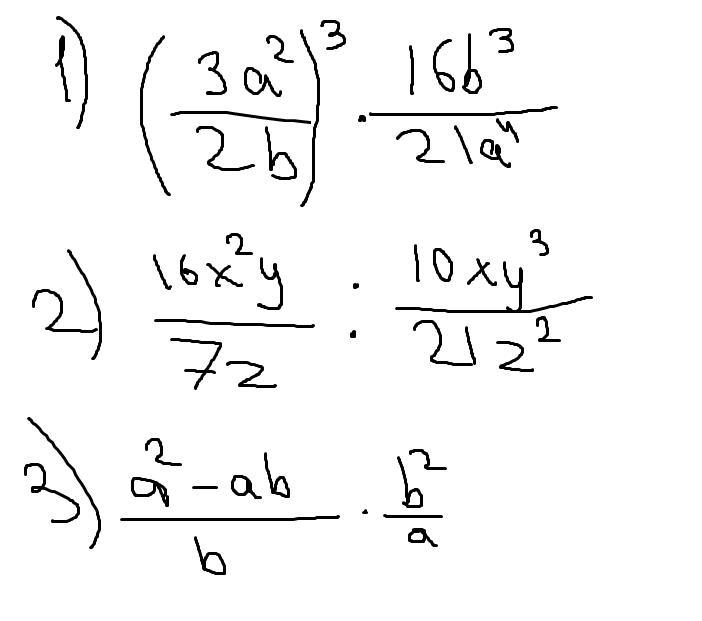 1) (3a²/2b)³ · 16b³/21a⁴
2) 16x²y/7z : 10xy³/21z²
3) a²-ab/b · b²/a